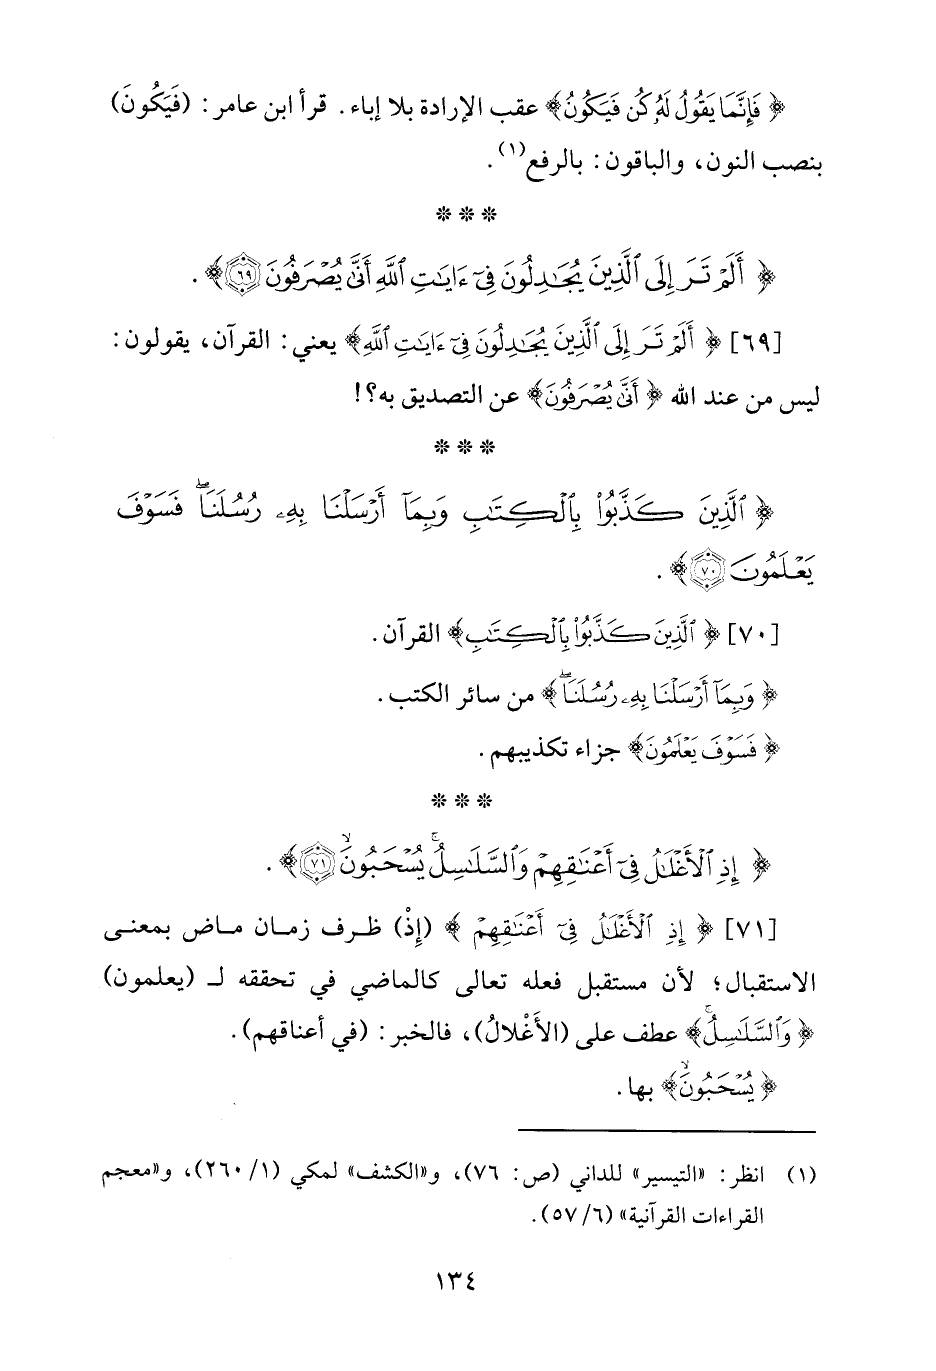 ﴿فَإِنَّمَا يَقُولُ لَهُۥ كُن فَيَكُونُ﴾ عقب الإرادة بلا إباء. قرأ ابن عامر: (فَيَكُونَ)
بنصب النون، والباقون: بالرفع(١).
* * *
﴿أَلَمْ تَرَ إِلَى ٱلَّذِينَ يُجَٰدِلُونَ فِىٓ ءَايَٰتِ ٱللَّهِ أَنَّىٰ يُصْرَفُونَ ٦٩﴾.
[٦٩] ﴿أَلَمْ تَرَ إِلَى ٱلَّذِينَ يُجَٰدِلُونَ فِىٓ ءَايَٰتِ ٱللَّهِ﴾ يعني: القرآن، يقولون:
ليس من عند الله ﴿أَنَّىٰ يُصْرَفُونَ﴾ عن التصديق به؟!
* * *
﴿ٱلَّذِينَ كَذَّبُوا۟ بِٱلْكِتَٰبِ وَبِمَآ أَرْسَلْنَا بِهِۦ رُسُلَنَا ۖ فَسَوْفَ
يَعْلَمُونَ ٧٠﴾.
[٧٠] ﴿ٱلَّذِينَ كَذَّبُوا۟ بِٱلْكِتَٰبِ﴾ القرآن.
﴿وَبِمَآ أَرْسَلْنَا بِهِۦ رُسُلَنَا ۖ﴾ من سائر الكتب.
﴿فَسَوْفَ يَعْلَمُونَ﴾ جزاء تكذيبهم.
* * *
﴿إِذِ ٱلْأَغْلَٰلُ فِىٓ أَعْنَٰقِهِمْ وَٱلسَّلَٰسِلُ ۚ يُسْحَبُونَ ۙ ٧١﴾.
[٧١] ﴿إِذِ ٱلْأَغْلَٰلُ فِىٓ أَعْنَٰقِهِمْ﴾ (إِذْ) ظرف زمان ماض بمعنى
الاستقبال؛ لأن مستقبل فعله تعالى كالماضي في تحققه لـ (يعلمون)
﴿وَٱلسَّلَٰسِلُ ۚ﴾ عطف على (الأَغْلالُ)، فالخبر: (في أعناقهم).
﴿يُسْحَبُونَ ۙ﴾ بها.
(١) انظر: «التيسير» للداني (ص: ٧٦)، و«الكشف» لمكي (١/ ٢٦٠)، و«معجم
القراءات القرآنية» (٦/ ٥٧).
١٣٤